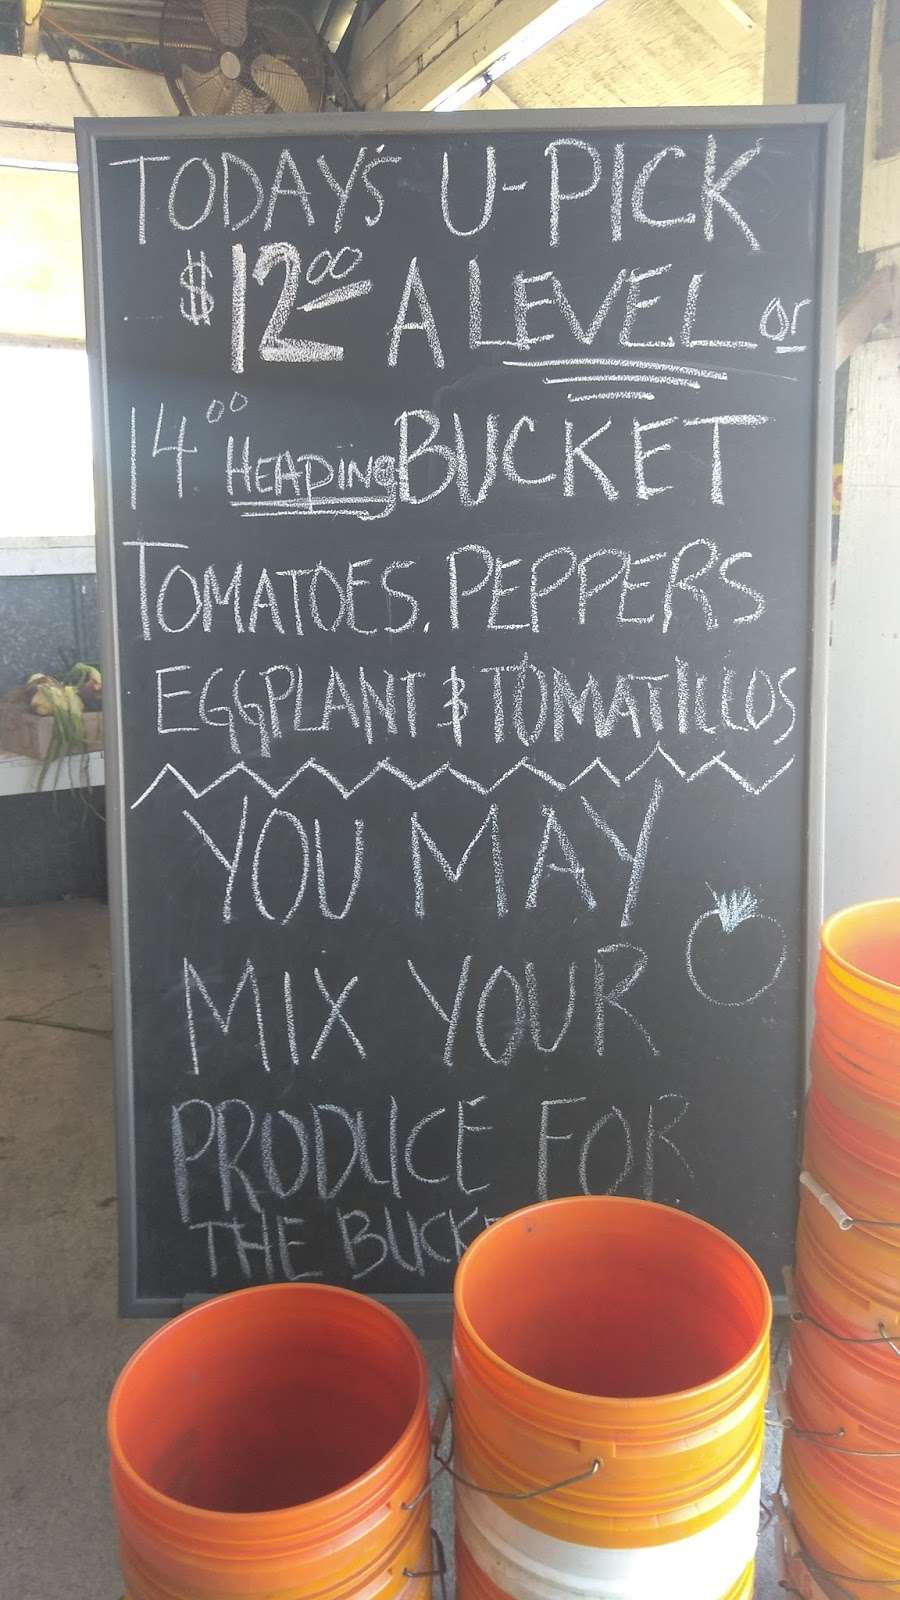 TODAY'S U-PICK
$12.00 A LEVEL or
14.00 HEAPING BUCKET
TOMATOES, PEPPERS
EGGPLANT & TOMATILLOS
YOU MAY
MIX YOUR
PRODUCE FOR
THE BUCK